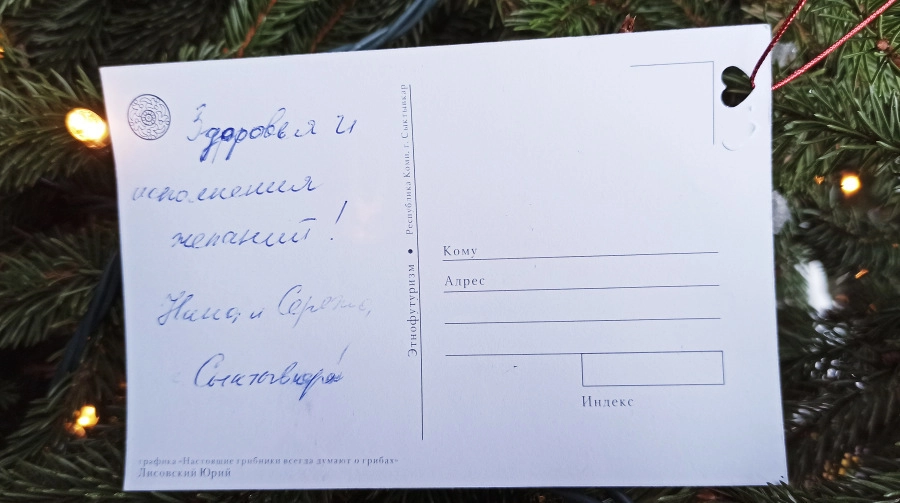 Здоровья и
исполнения
желаний!
и Серёжа,
Сыктывкар!
Этнофутуризм • Республика Коми, г. Сыктывкар
Кому
Адрес
Индекс
графика «Настоящие грибники всегда думают о грибах»
Лисовский Юрий